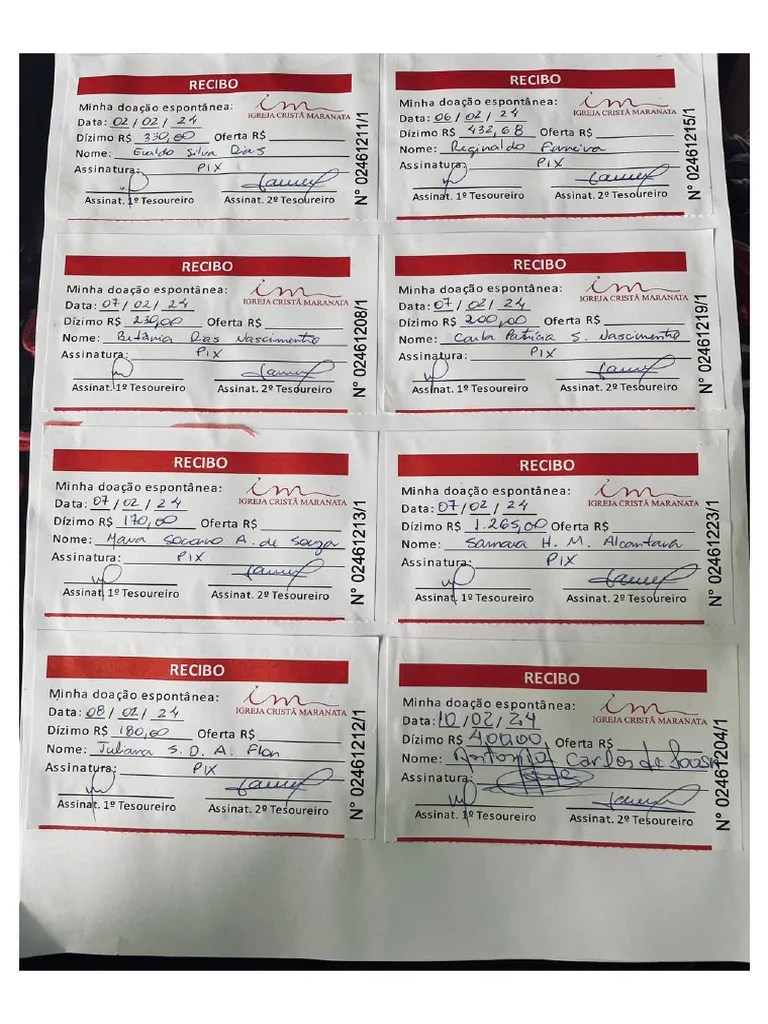 RECIBO
im
Minha doação espontânea:
IGREJA CRISTÃ MARANATA
Data: 02 / 02 / 24
Dízimo R$ 330,00 Oferta R$
Nome: Evaldo Silva Dias
Assinatura: PIX
Assinat. 1º Tesoureiro Assinat. 2º Tesoureiro
N° 02461211/1
RECIBO
im
Minha doação espontânea:
IGREJA CRISTÃ MARANATA
Data: 06 / 02 / 24
Dízimo R$ 432,68 Oferta R$
Nome: Reginaldo Ferreira
Assinatura: PIX
Assinat. 1º Tesoureiro Assinat. 2º Tesoureiro
N° 02461215/1
RECIBO
im
Minha doação espontânea:
IGREJA CRISTÃ MARANATA
Data: 07 / 02 / 24
Dízimo R$ 230,00 Oferta R$
Nome: Dias Nascimento
Assinatura: PIX
Assinat. 1º Tesoureiro Assinat. 2º Tesoureiro
N° 02461208/1
RECIBO
im
Minha doação espontânea:
IGREJA CRISTÃ MARANATA
Data: 07 / 02 / 24
Dízimo R$ 200,00 Oferta R$
Nome: Carla Patrícia S. Nascimento
Assinatura: PIX
Assinat. 1º Tesoureiro Assinat. 2º Tesoureiro
N° 02461219/1
RECIBO
im
Minha doação espontânea:
IGREJA CRISTÃ MARANATA
Data: 07 / 02 / 24
Dízimo R$ 170,00 Oferta R$
Nome: Maria Socorro A. de Souza
Assinatura: PIX
Assinat. 1º Tesoureiro Assinat. 2º Tesoureiro
N° 02461213/1
RECIBO
im
Minha doação espontânea:
IGREJA CRISTÃ MARANATA
Data: 07 / 02 / 24
Dízimo R$ 1.265,00 Oferta R$
Nome: Samara H. M. Alcantara
Assinatura: PIX
Assinat. 1º Tesoureiro Assinat. 2º Tesoureiro
N° 02461223/1
RECIBO
im
Minha doação espontânea:
IGREJA CRISTÃ MARANATA
Data: 08 / 02 / 24
Dízimo R$ 180,00 Oferta R$
Nome: Juliana S. D. A. Flor
Assinatura: PIX
Assinat. 1º Tesoureiro Assinat. 2º Tesoureiro
N° 02461212/1
RECIBO
im
Minha doação espontânea:
IGREJA CRISTÃ MARANATA
Data: 10 / 02 / 24
Dízimo R$ 400,00 Oferta R$
Nome: Antonio Carlos de
Assinatura:
Assinat. 1º Tesoureiro Assinat. 2º Tesoureiro
N° 02461204/1